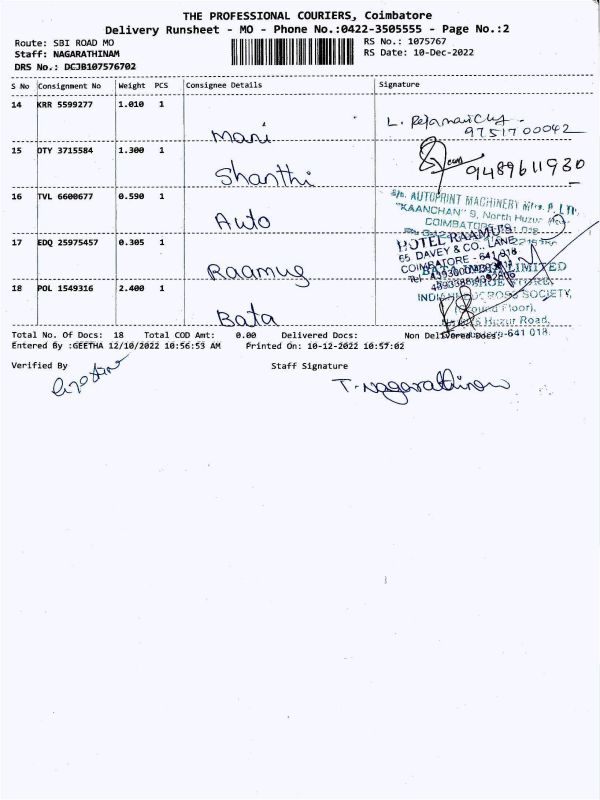 THE PROFESSIONAL COURIERS, Coimbatore
Delivery Runsheet - MO - Phone No.:0422-3505555 - Page No.:2
Route: SBI ROAD MO
Staff: NAGARATHINAM
DRS No.: DCJB107576702
RS No.: 1075767
RS Date: 10-Dec-2022
S No Consignment No Weight PCS Consignee Details Signature
14 KRR 5599277 1.010 1
Mani
9751700042
15 OTY 3715584 1.300 1
Shanthi
9489611930
16 TVL 6600677 0.590 1
Auto
AUTOPRINT MACHINERY Mfrs. P. LTD.
"KAANCHAN" 9, North Huzur
COIMBATORE
17 EDQ 25975457 0.305 1
Raamus
HOTEL RAAMUS
65 DAVEY & CO., LANE
COIMBATORE - 641 018
LIMITED
18 POL 1549316 2.400 1
Bata
SOCIETY,
Huzur Road,
641 018.
Total No. Of Docs: 18 Total COD Amt: 0.00 Delivered Docs: Non Delivered Docs:
Entered By :GEETHA 12/10/2022 10:56:53 AM Printed On: 10-12-2022 10:57:02
Verified By Staff Signature
T. Nagarathinam